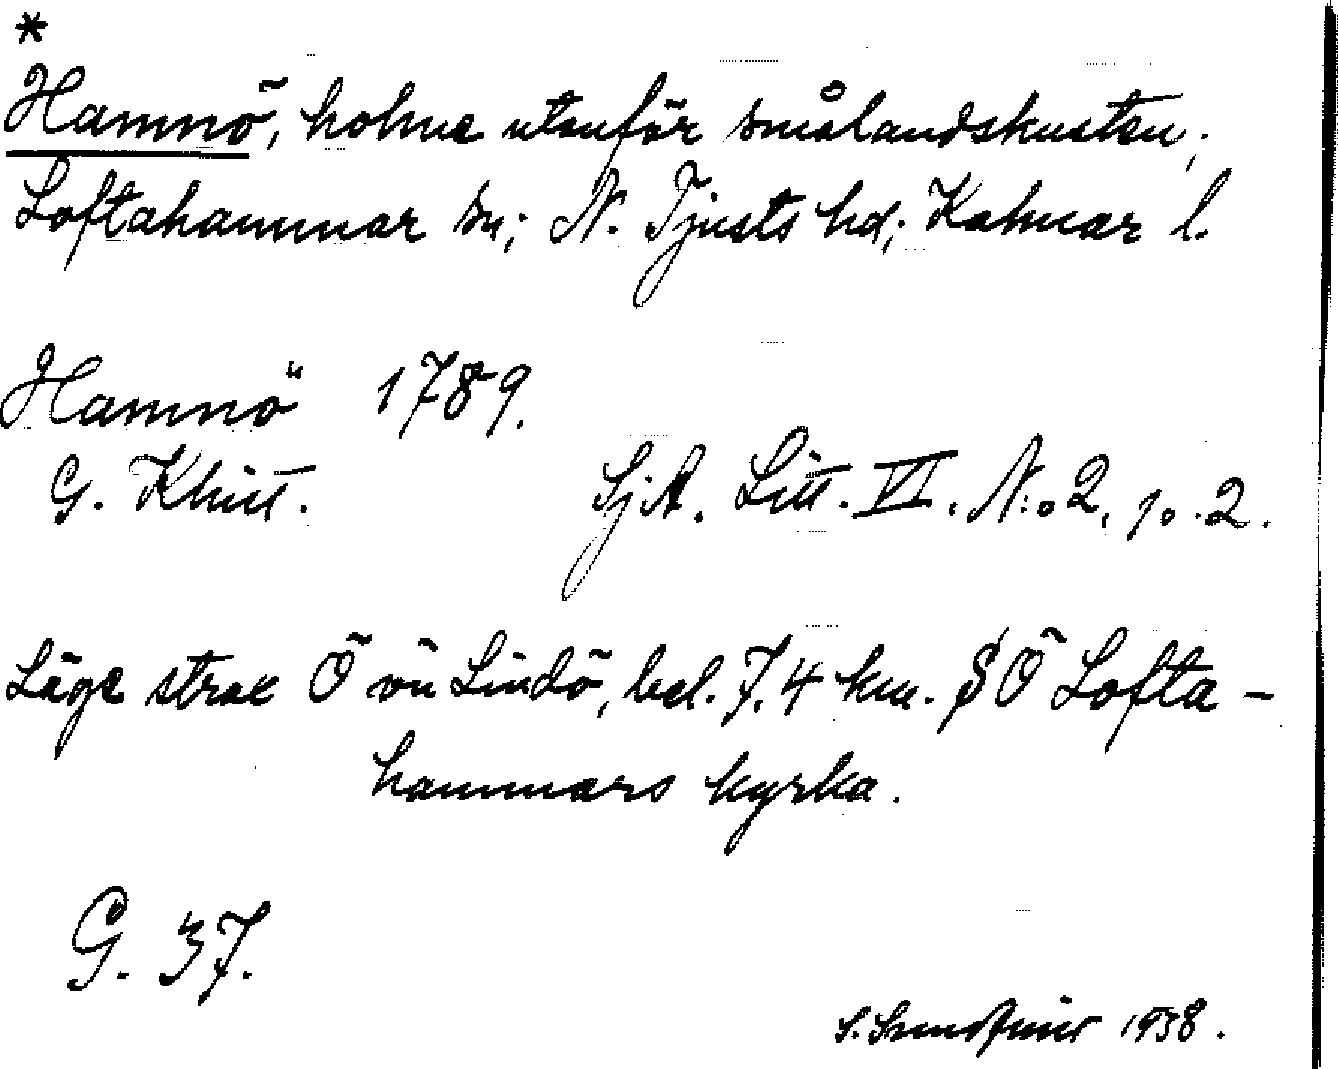 *
Hamnö, holme utanför smålandskusten,
Loftahammar sn; N. Tjusts hd; Kalmar l.
Hamnö 1789.
G. Klint. SjA. Litt. VI. N:o 2, 1o. 2.
Läge strax Ö om Lindö, bel. 7,4 km. SÖ Lofta-
hammars kyrka.
G. 37.
S. 1938.